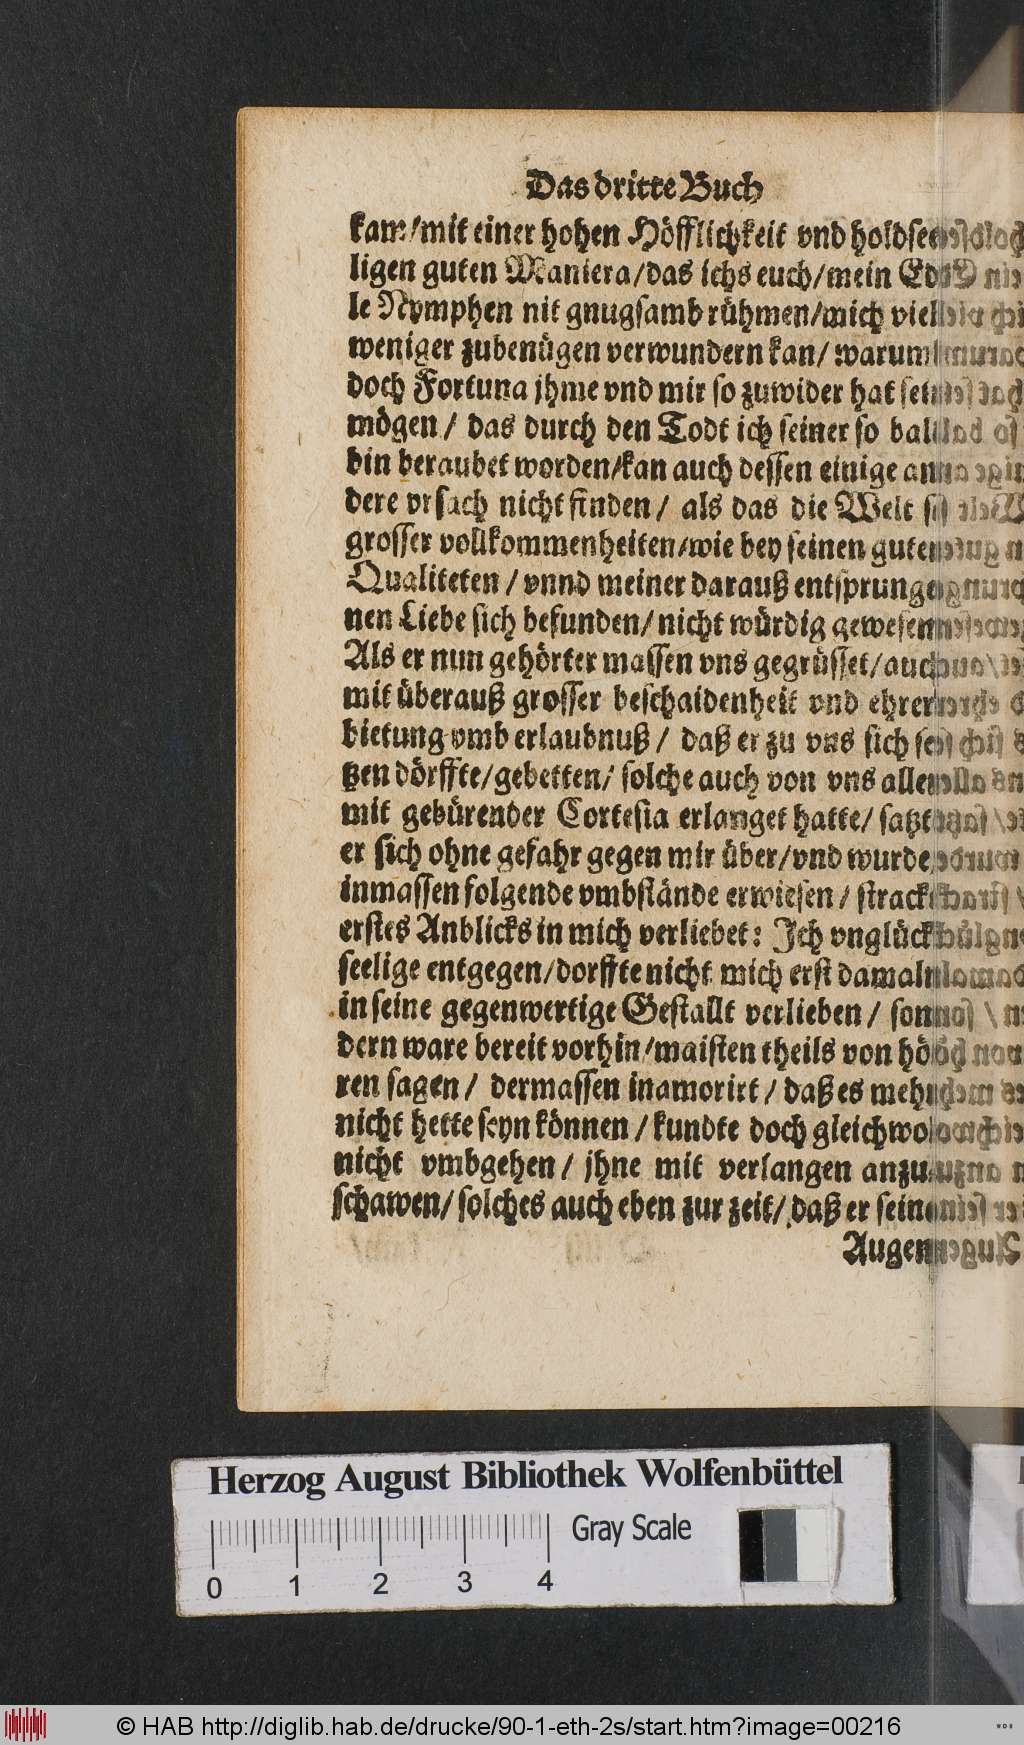 Das dritte Buch
kam/mit einer hohen Höfflichkeit vnd holdsee-
ligen guten Maniera/das ichs euch/mein Ed-
le Nymphen nit gnugsamb rühmen/mich viel
weniger zubenügen verwundern kan/ warumb
doch Fortuna jhme vnd mir so zuwider hat sein
mögen / das durch den Todt ich seiner so bald
bin beraubet worden/kan auch dessen einige an-
dere vrsach nicht finden / als das die Welt so
grosser vollkommenheiten/wie bey seinen guten
Qualiteten / vnnd meiner darauß entsprunge-
nen Liebe sich befunden/ nicht würdig gewesen
Als er nun gehörter massen vns gegrüsset/auch
mit überauß grosser beschaidenheit vnd ehrer-
bietung vmb erlaubnuß / daß er zu vns sich se-
tzen dörffte/gebetten/ solche auch von vns allen
mit gebürender Cortesia erlanget hatte/ satzte
er sich ohne gefahr gegen mir über/vnd wurde
inmassen folgende vmbstände erwiesen / stracks
erstes Anblicks in mich verliebet: Ich vnglück-
seelige entgegen/dorffte nicht mich erst damaln
in seine gegenwertige Gestallt verlieben / son-
dern ware bereit vorhin/maisten theils von hö-
ren sagen / dermassen inamorirt / daß es mehr
nicht hette seyn können / kundte doch gleichwol
nicht vmbgehen / jhne mit verlangen anzu-
schawen/ solches auch eben zur zeit/ daß er seine
Augen
Herzog August Bibliothek Wolfenbüttel
Gray Scale
0 1 2 3 4
© HAB http://diglib.hab.de/drucke/90-1-eth-2s/start.htm?image=00216